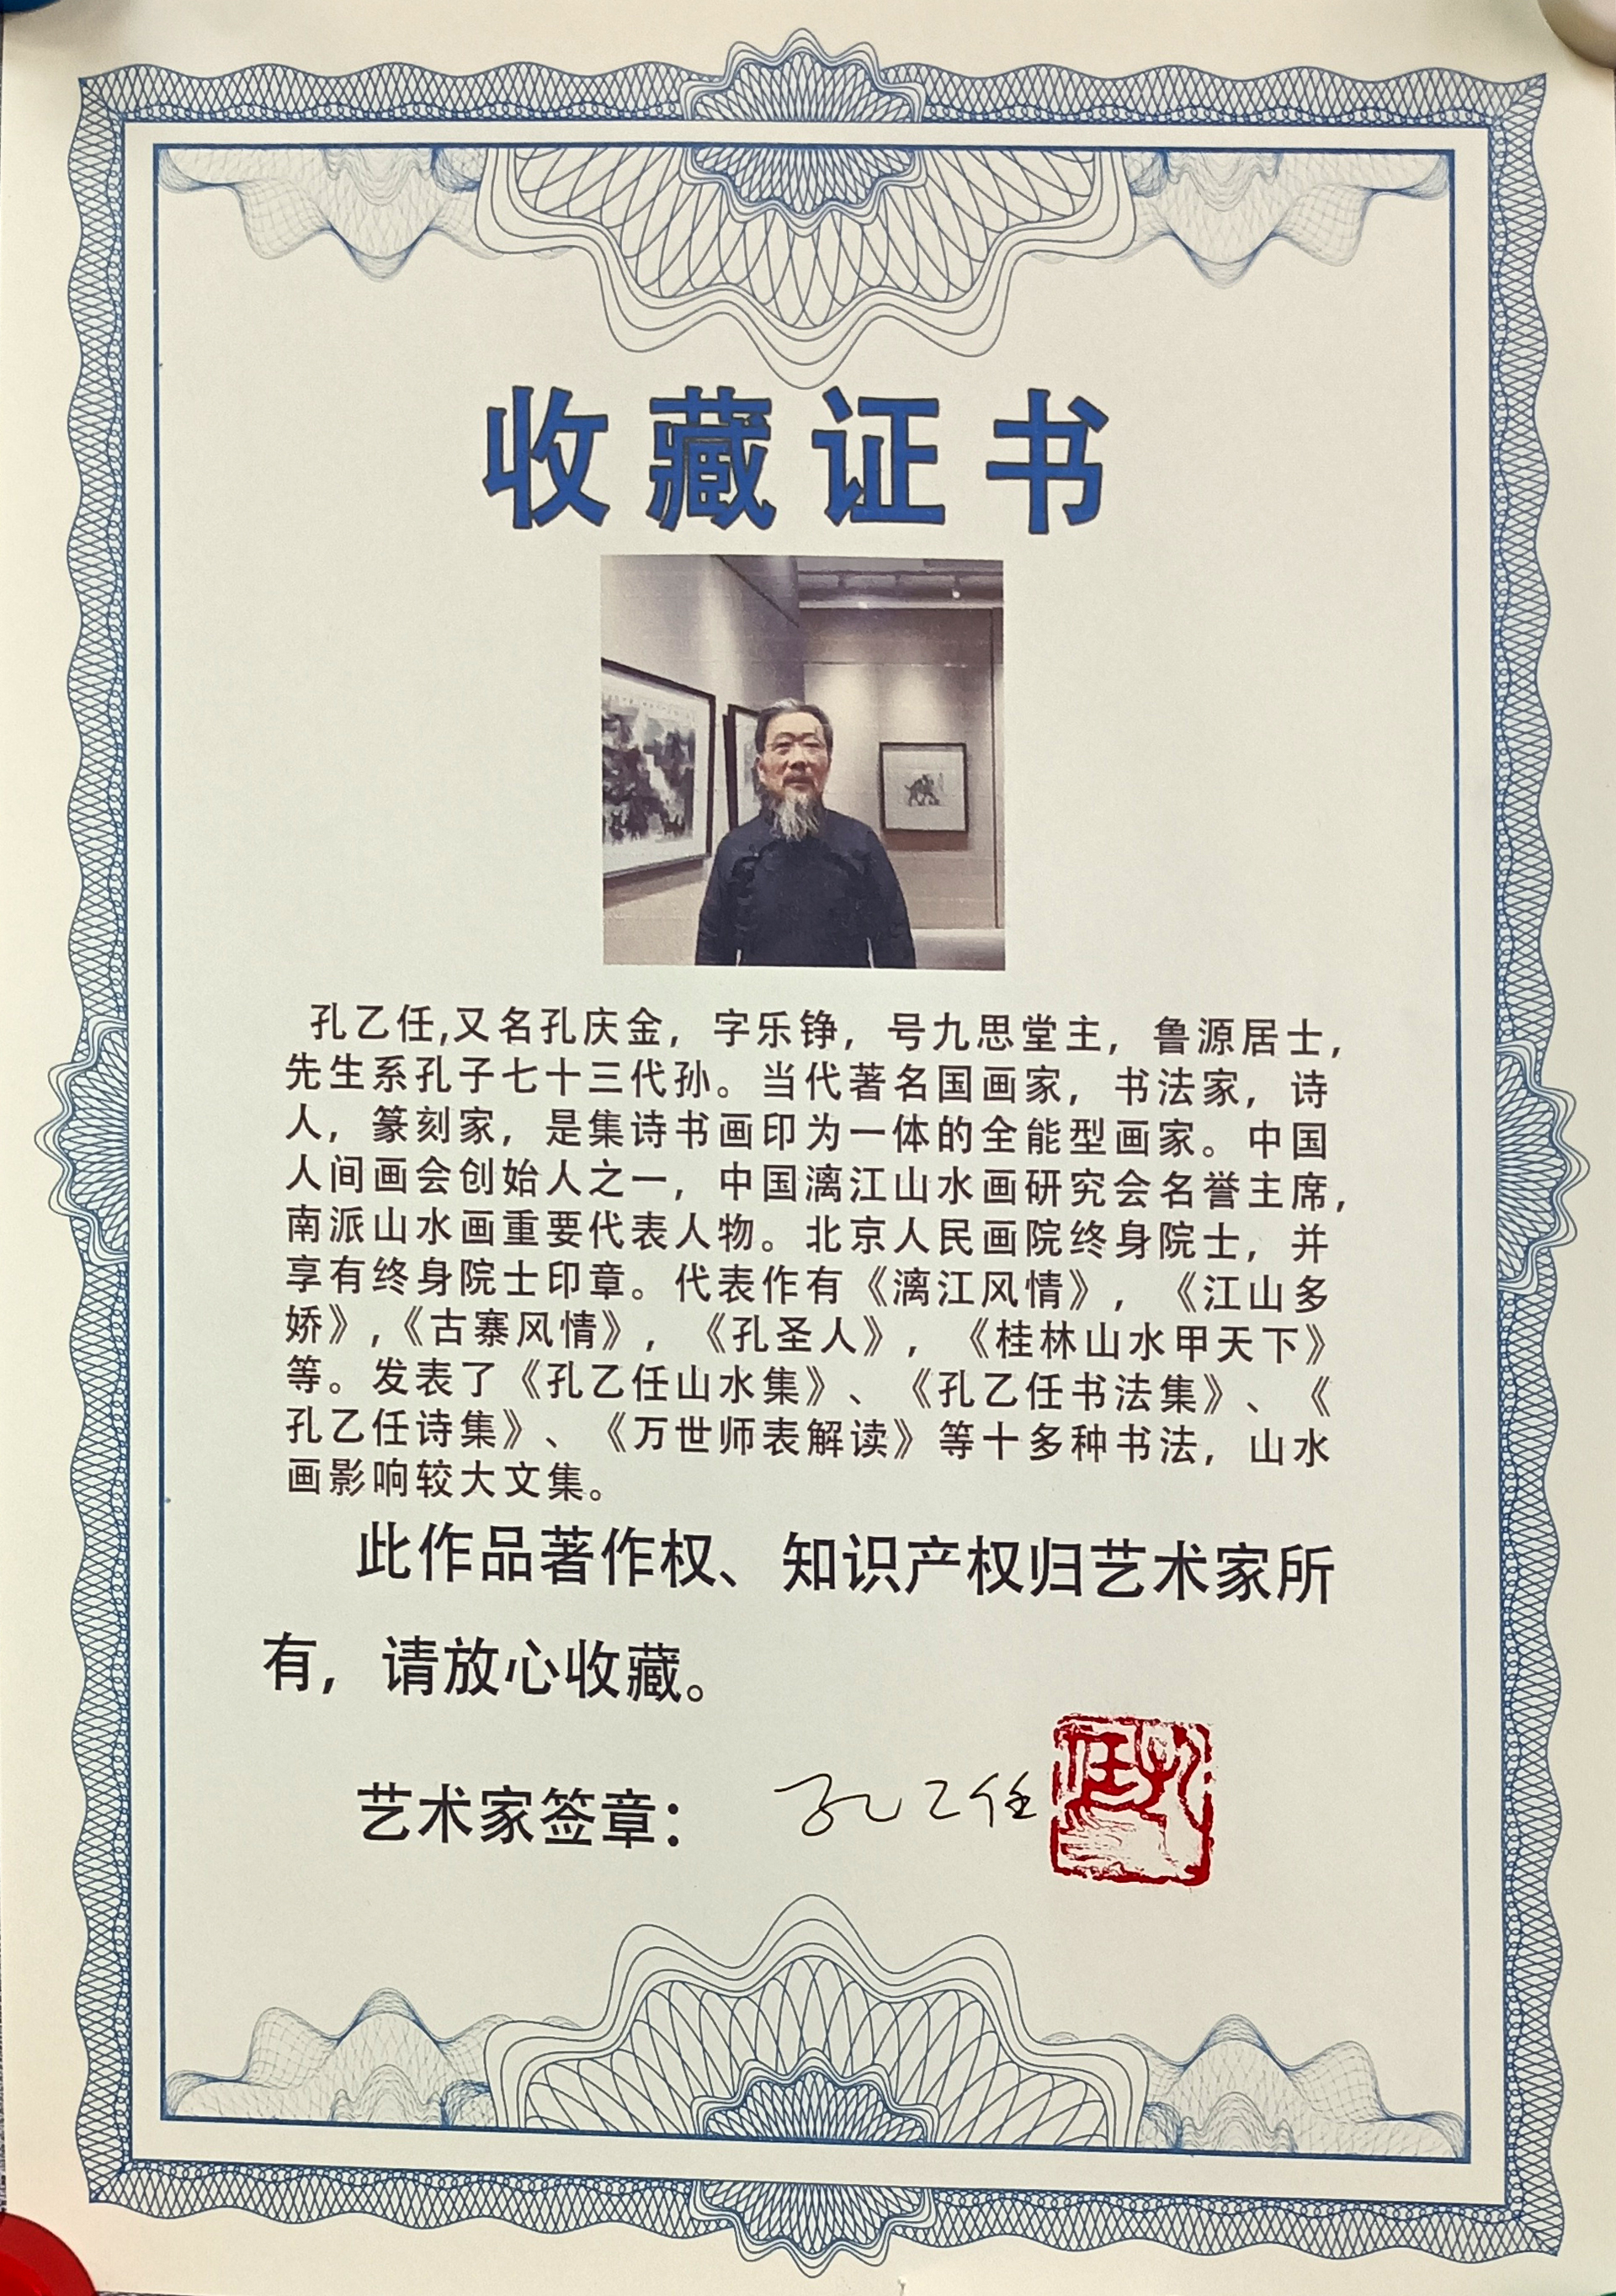 收藏证书
孔乙任,又名孔庆金，字乐铮，号九思堂主，鲁源居士，
先生系孔子七十三代孙。当代著名国画家，书法家，诗
人，篆刻家，是集诗书画印为一体的全能型画家。中国
人间画会创始人之一，中国漓江山水画研究会名誉主席，
南派山水画重要代表人物。北京人民画院终身院士，并
享有终身院士印章。代表作有《漓江风情》，《江山多
娇》,《古寨风情》，《孔圣人》，《桂林山水甲天下》
等。发表了《孔乙任山水集》、《孔乙任书法集》、《
孔乙任诗集》、《万世师表解读》等十多种书法，山水
画影响较大文集。
此作品著作权、知识产权归艺术家所
有，请放心收藏。
艺术家签章：孔乙任